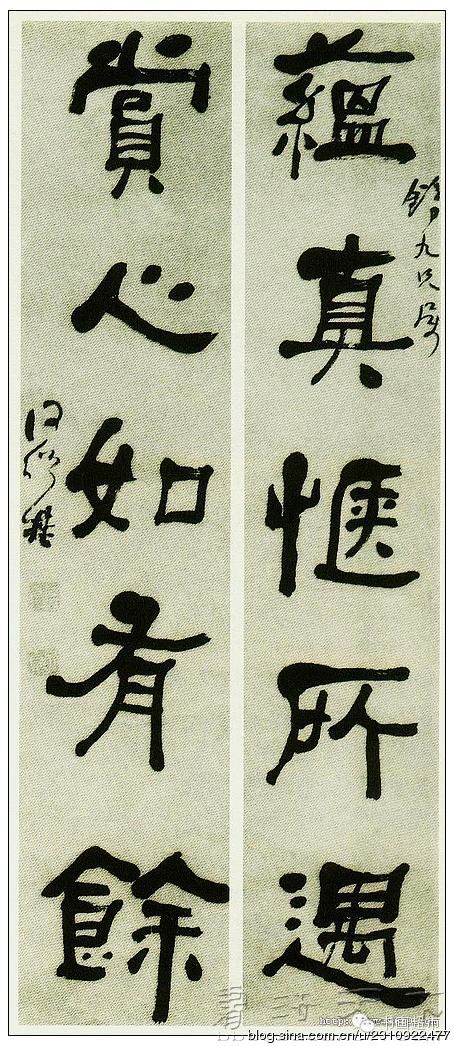 蘊真愜所遇
九兄屬
賞心如有餘
何紹基
blog.sina.com.cn/u/2310922477